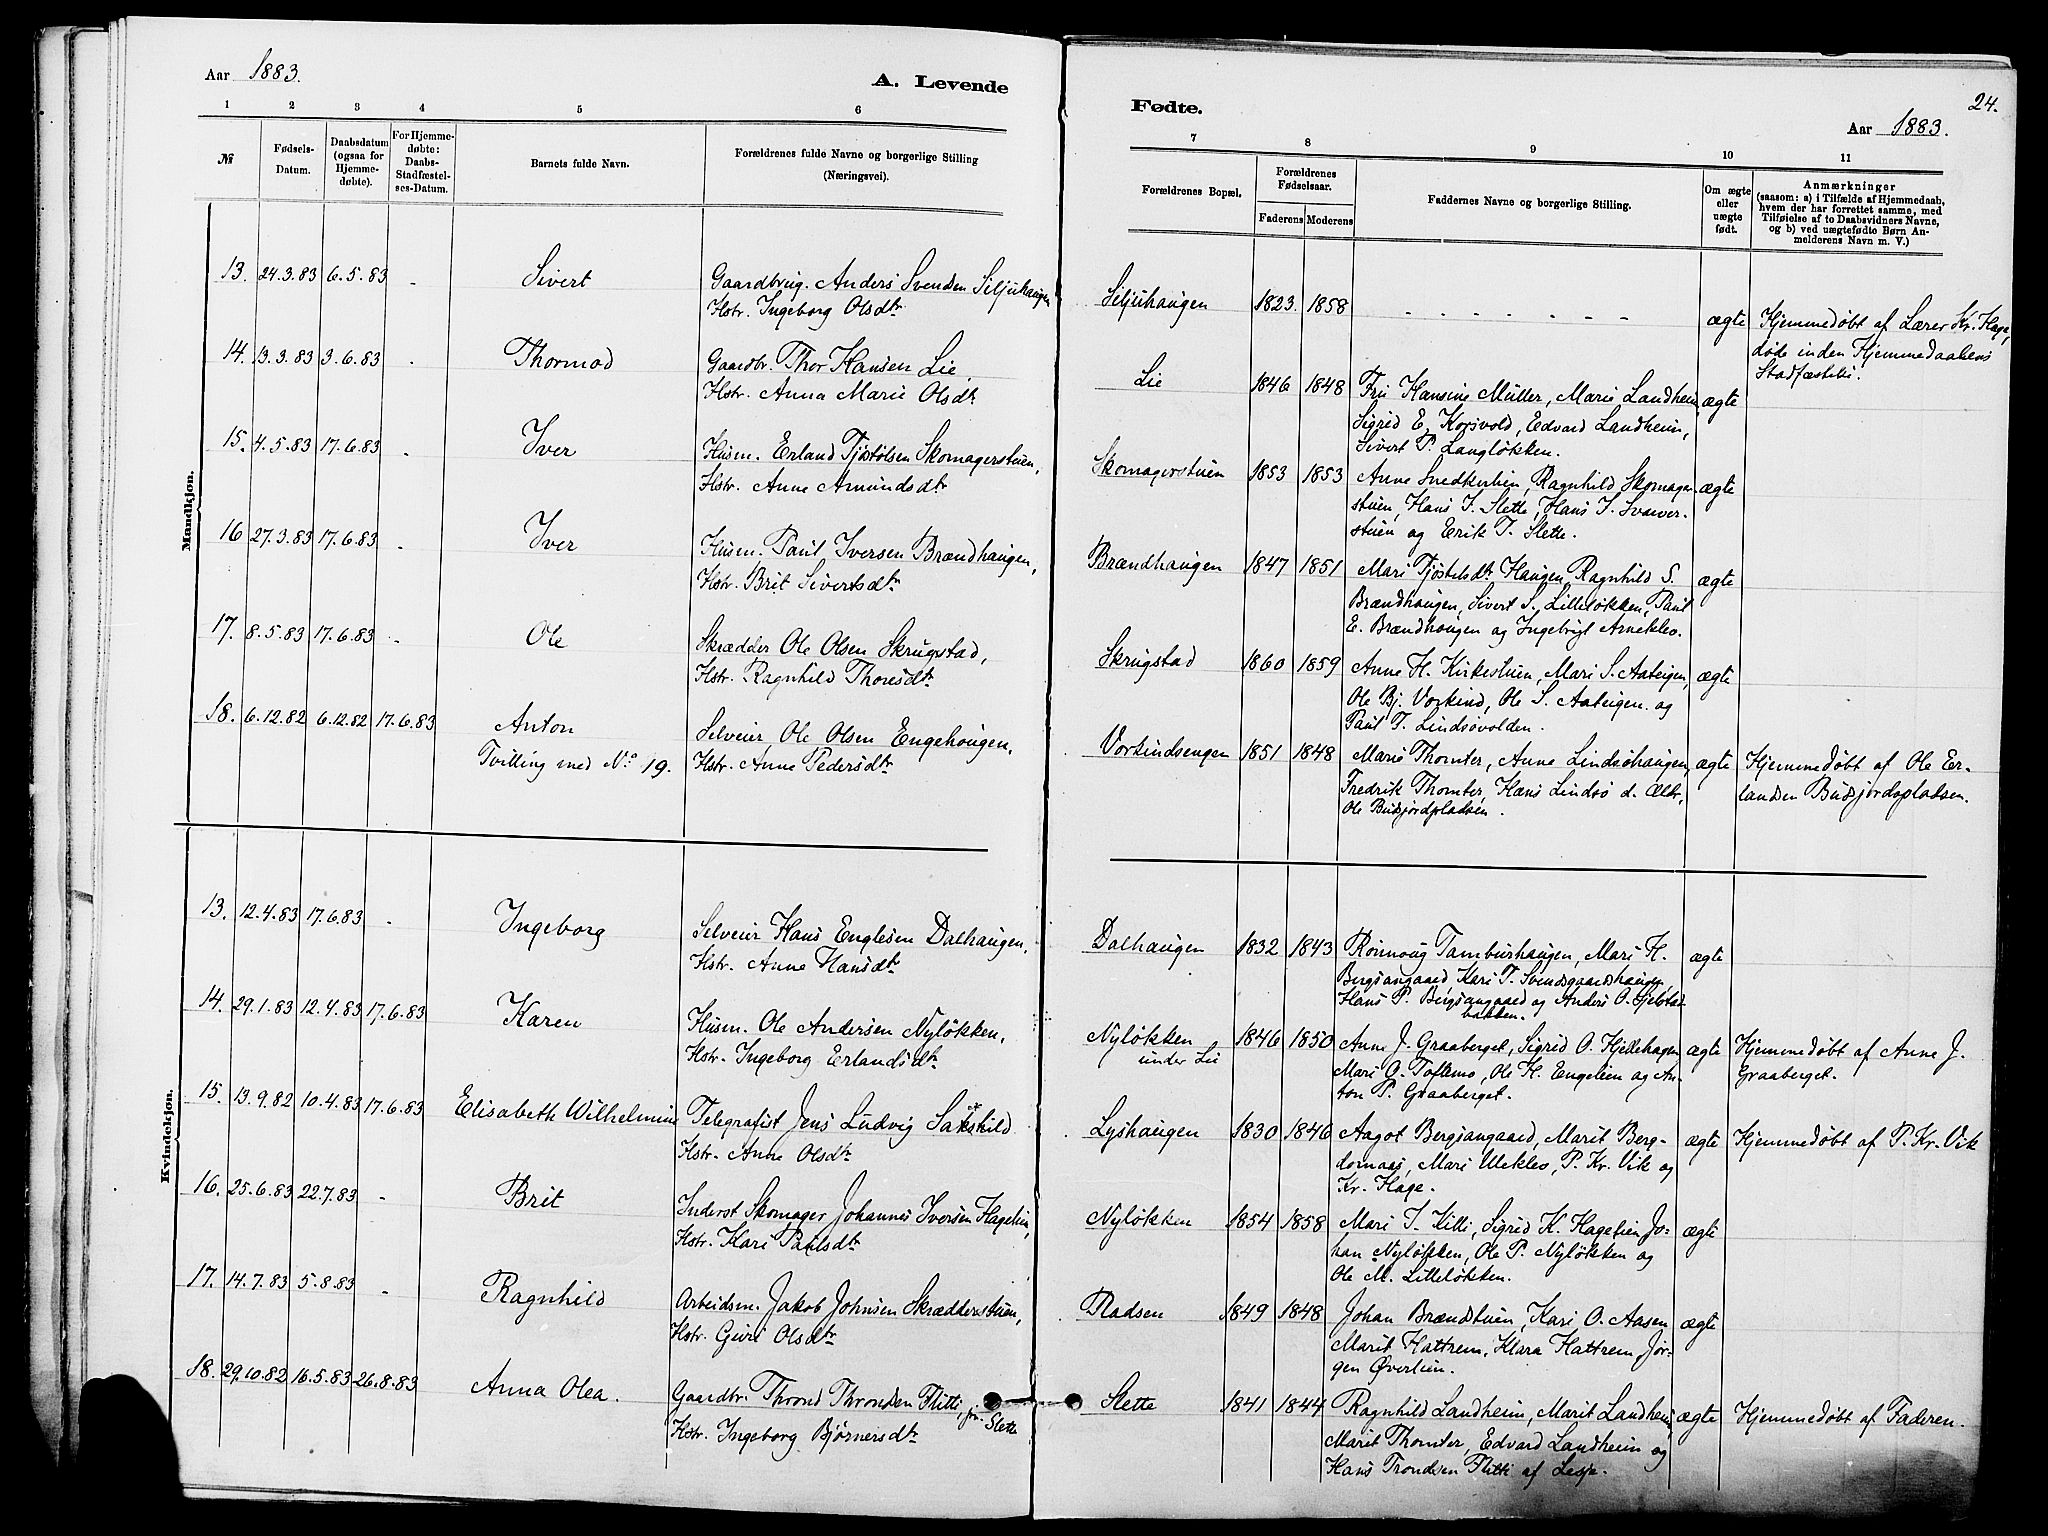 Aar 1883.
A. Levende
1 2 3 4 5 6
№
Fødsels-
Datum.
Daabsdatum
(ogsaa for
Hjemme-
døbte).
For Hjemme-
døbte:
Daabs-
Stadfæstel-
ses-Datum.
Barnets fulde Navn.
Forældrenes fulde Navne og borgerlige Stilling
(Næringsvei).
Mandkjøn.
13. 24.3.83 6.5.83 - Sivert Gaardbrug. Anders Svendsen Siljuhaugen
Hstr. Ingeborg Olsdtr
14. 13.3.83 3.6.83 - Thormod Gaardbr. Thor Hansen Lie,
Hstr. Anna Marie Olsdtr
15. 4.5.83 17.6.83 - Iver Husm. Erland Tjøstolsen Skomagerstuen,
Hstr. Anne Amundsdtr
16 27.3.83 17.6.83 - Iver Husm. Paul Iversen Brændhaugen,
Hstr. Brit Sivertsdtr
17. 8.5.83 17.6.83 - Ole Skrædder Ole Olsen Skrugstad,
Hstr. Ragnhild Thoresdtr
18. 6.12.82 6.12.82 17.6.83 Anton Selveier Ole Olsen Engehougen,
Tvilling med No 19. Hstr. Anne Pedersdtr
Kvindekjøn.
13. 12.4.83 17.6.83 - Ingeborg Selveier Hans Englesen Dalhaugen,
Hstr. Anne Hansdtr
14. 29.1.83 12.4.83 17.6.83 Karen Husm. Ole Andersen Nyløkken,
Hstr. Ingeborg Erlandsdtr
15. 13.9.82 10.4.83 17.6.83 Elisabeth Wilhelmine Telegrafist Jens Ludvig Sakskild
Hstr. Anne Olsdtr
16. 25.6.83 22.7.83 - Brit Inderst Skomager Johannes Iversen Hagelien,
Hstr. Kari Paulsdtr
17. 14.7.83 5.8.83 - Ragnhild Arbeidsm. Jakob Johnsen Skrædderstuen,
Hstr. Guri Olsdtr
18. 29.10.82 16.5.83 26.8.83 Anna Olea. Gaardbr. Thrond Thronsen Flitti
fr. Slette
Hstr. Ingeborg Bjørnersdtr
Fødte.
24.
Aar 1883.
7 8 9 10 11
Forældrenes Bopæl.
Forældrenes
Fødselsaar.
Faderens Moderens
Faddernes Navne og borgerlige Stilling.
Om ægte
eller
uægte
født.
Anmærkninger
(saasom: a) i Tilfælde af Hjemmedaab,
hvem der har forrettet samme, med
Tilføielse af to Daabsvidners Navne,
og b) ved uægtefødte Børn An-
melderens Navn m. V.)
Siljuhaugen 1823. 1858 - - - - - - - ægte Hjemmedøbt af Lærer Kr. Hage,
døde inden Hjemmedaabens
Stadfæstelse.
Lie 1846 1848 Fru Hansine Müller, Marie Landheim, ægte
Sigrid E. Korsvold, Edvard Landheim,
Sivert P. Langløkken.
Skomagerstuen 1853 1853 Anne Snedkerlien, Ragnhild Skomager- ægte
stuen, Hans J. Slette, Hans J. Svarver-
stuen og Erik T. Slette.
Brændhaugen 1847 1851 Mari Tjøstelsdtr Haugen, Ragnhild S. ægte
Brændhaugen, Sivert S. Lilleløkken, Paul
E. Brændhaugen og Ingebrigt Arneklev.
Skrugstad 1860 1859 Anne H. Kirkestuen, Mari S. Aateigen, ægte
Ole Bj. Vorkind, Ole S. Aateigen og
Paul T. Lindsøvolden.
Vorkindsengen 1851 1848 Marie Thomter, Anne Lindsøhaugen, ægte Hjemmedøbt af Ole Er-
Fredrik Thomter, Hans Lindsø d. Æltr, landsen Busjordspladsen.
Ole Busjordpladsen.
Dalhaugen 1832 1843 Rønnoug Tamburhaugen, Mari H. ægte
Bergsangaard, Kari T. Svendsgaardshaugen,
Hans P. Bergsangaard og Anders O. Hjelstad-
bakken.
Nyløkken 1846 1850 Anne J. Graaberget, Sigrid O. Hjellehagen ægte Hjemmedøbt af Anne J.
under Lie Mari O. Toftemo, Ole H. Engelien og An- Graaberget.
ton P. Graaberget.
Lyshaugen 1830 1846 Aagot Bergsangaard, Marit Berg- ægte Hjemmedøbt af P. Kr. Vik
domaas, Mari Uleklev, P. Kr. Vik og
Kr. Hage.
Nyløkken 1854 1858 Mari I. Killi, Sigrid K. Hagelien Jo- ægte
han Nyløkken, Ole P. Nyløkken og
Ole M. Lilleløkken.
Pladsen 1849 1848 Johan Brændstuen, Kari O. Aasen ægte
Marit Hattrem, Klara Hattrem, Jør-
gen Øverlien.
Slette 1841 1844 Ragnhild Landheim, Marit Landheim, ægte Hjemmedøbt af Faderen.
Marit Thomter, Edvard Landheim og
Hans Trondsen Flitti af Lesje.